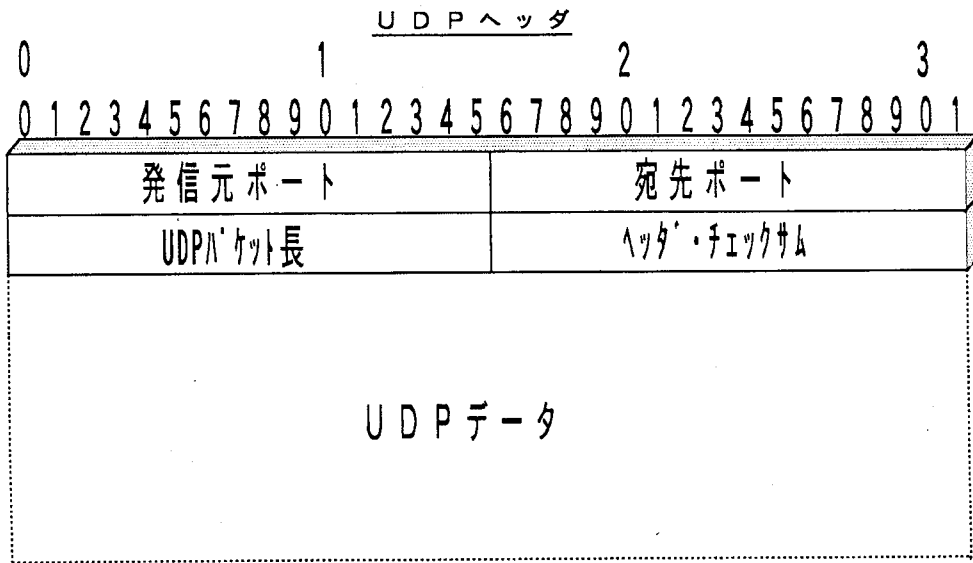 UDPヘッダ
0 1 2 3
0 1 2 3 4 5 6 7 8 9 0 1 2 3 4 5 6 7 8 9 0 1 2 3 4 5 6 7 8 9 0 1
発信元ポート 宛先ポート
UDPパケット長 ヘッダ・チェックサム
UDPデータ